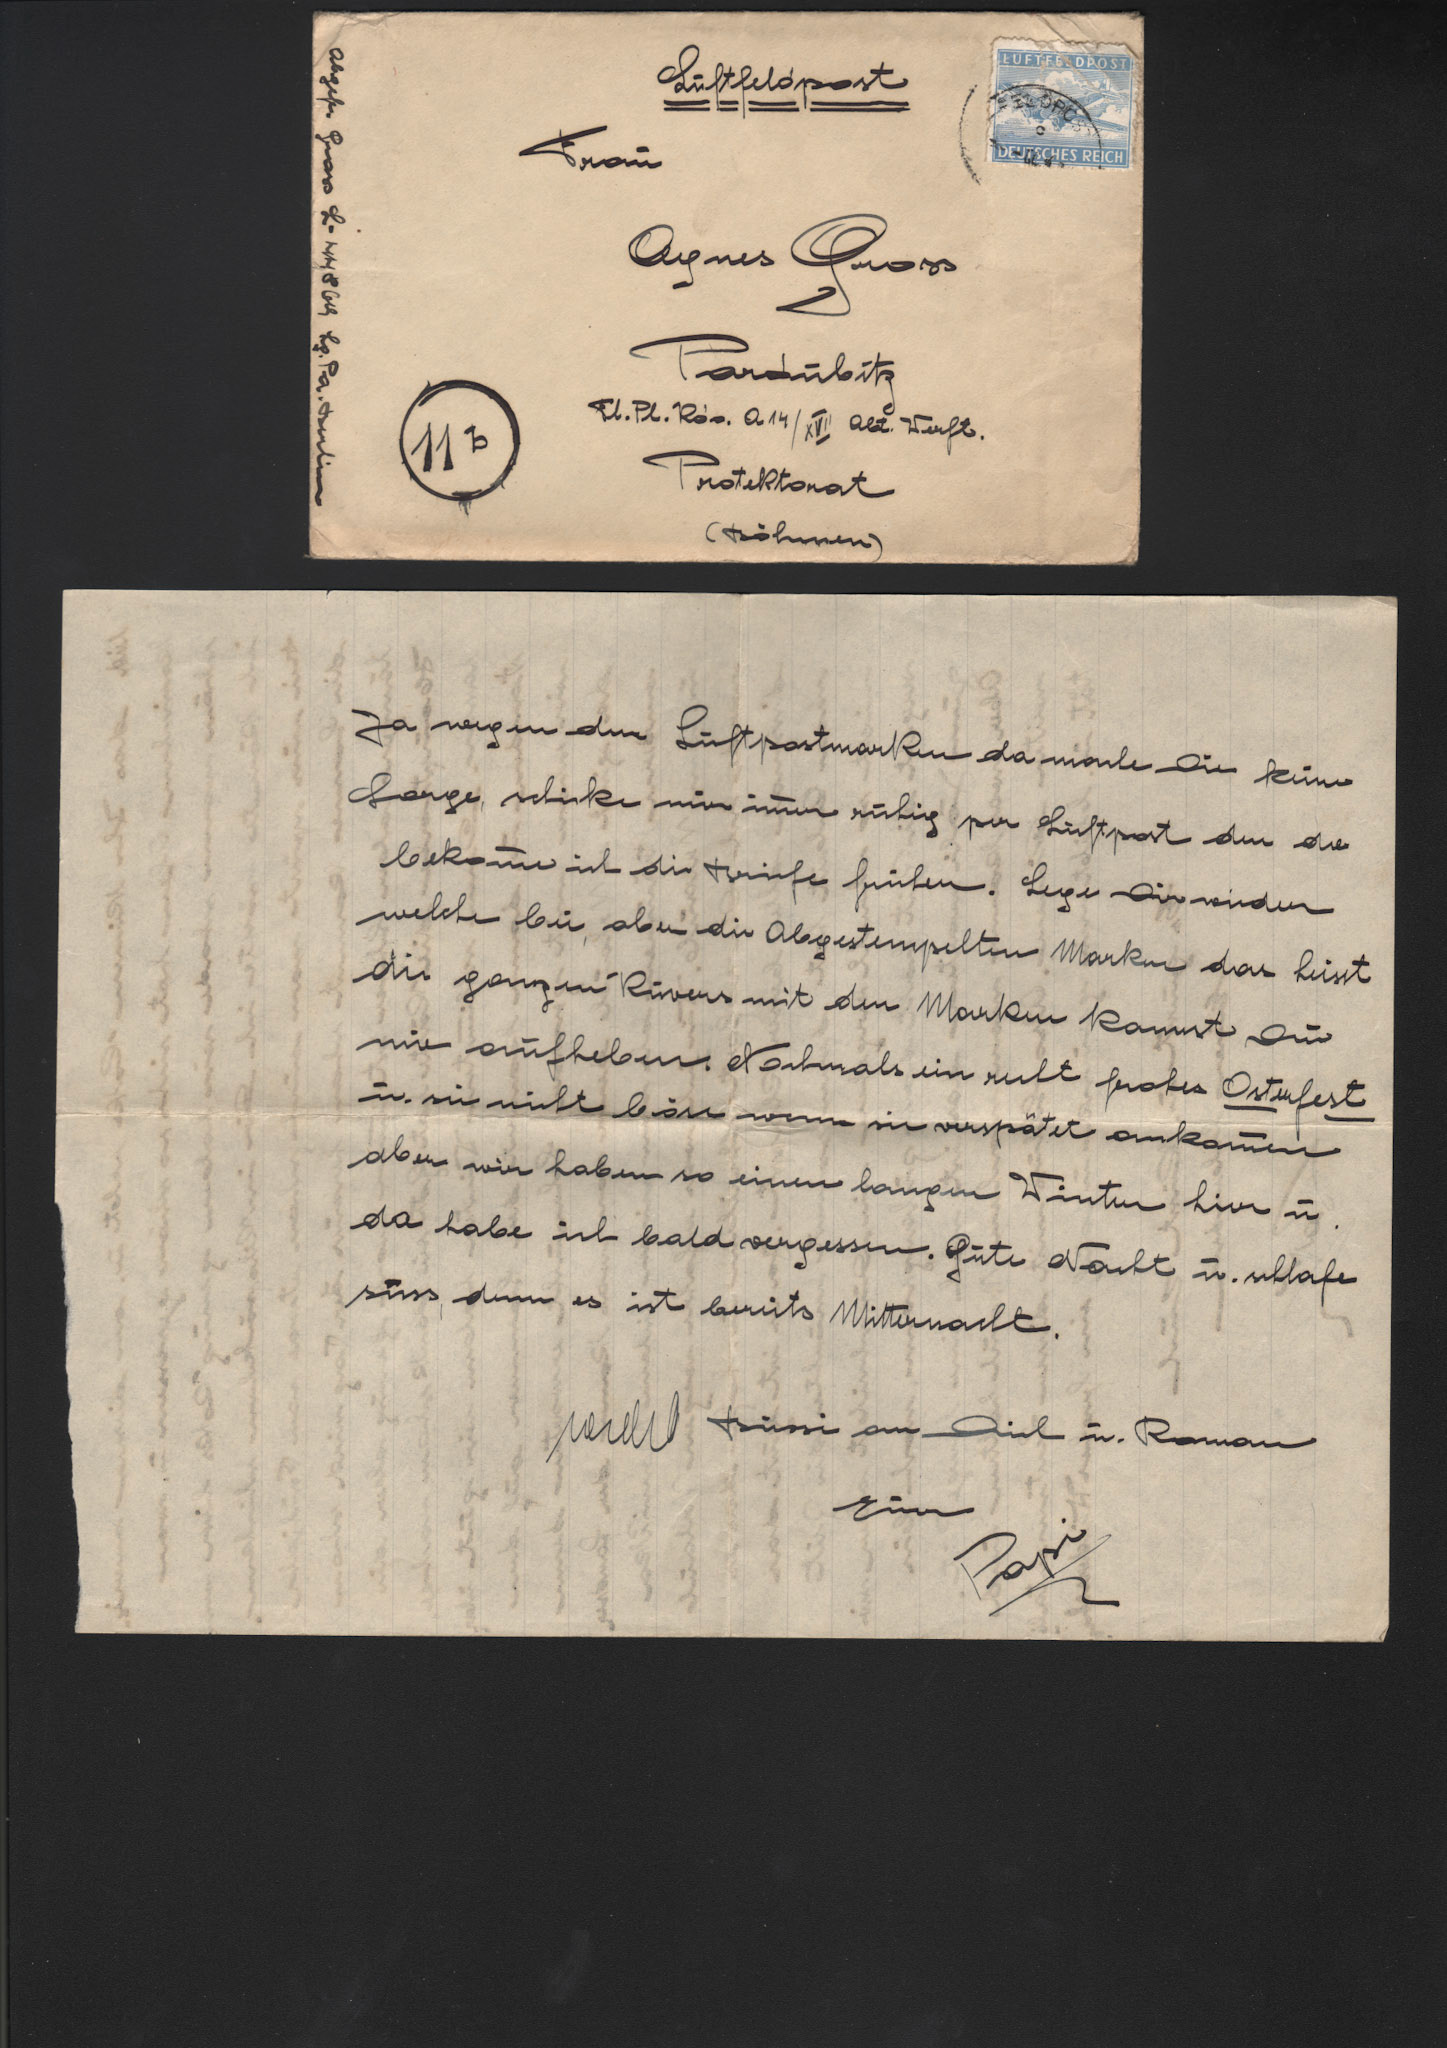 Luftfeldpost
LUFTFELDPOST
DEUTSCHES REICH
FELDPOST
Frau
Agnes Gross
Pardubitz
Fl. Pl. Kdo. A 14/XVII Abt. Werft.
Protektorat
(Böhmen)
11 b
Gross L. Lg. Pa. Berlin
Ja wegen den Luftpostmarken da mache Dir keine
Sorge, schicke mir im̅er ruhig per Luftpost den da
beko̅me ich die Briefe früher. Lege Dir wieder
welche bei, aber die Abgestempelten Marken das heisst
die ganzen Kuvers mit den Marken kannst Du
mir aufheben. Nochmals ein recht frohes Osterfest
u. sei nicht böse wenn sie verspätet anko̅men
aber wir haben so einen langen Winter hier u.
da habe ich bald vergessen. Gute Nacht u. schlafe
süss, denn es ist bereits Mitternacht.
Bussi an Dich u. Roman
Euer
Papi